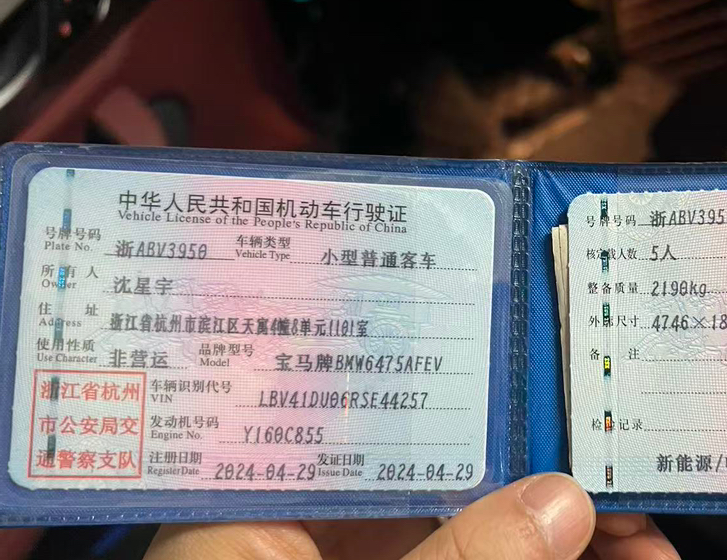 中华人民共和国机动车行驶证
Vehicle License of the People's Republic of China
号牌号码 浙ABV3950 车辆类型 小型普通客车
Plate No. Vehicle Type
所有人 沈星宇
Owner
住址 浙江省杭州市滨江区天寓4幢8单元1101室
Address
使用性质 非营运 品牌型号 宝马牌BMW6475AFEV
Use Character Model
浙江省杭州
市公安局交
通警察支队
车辆识别代号 LBV41DU06RSE44257
VIN
发动机号码 Y160C855
Engine No.
注册日期 2024-04-29 发证日期 2024-04-29
Register Date Issue Date
号牌号码 浙ABV395
核定载人数 5人
整备质量 2190kg
外廓尺寸 4746×18
备注
检验记录
新能源/